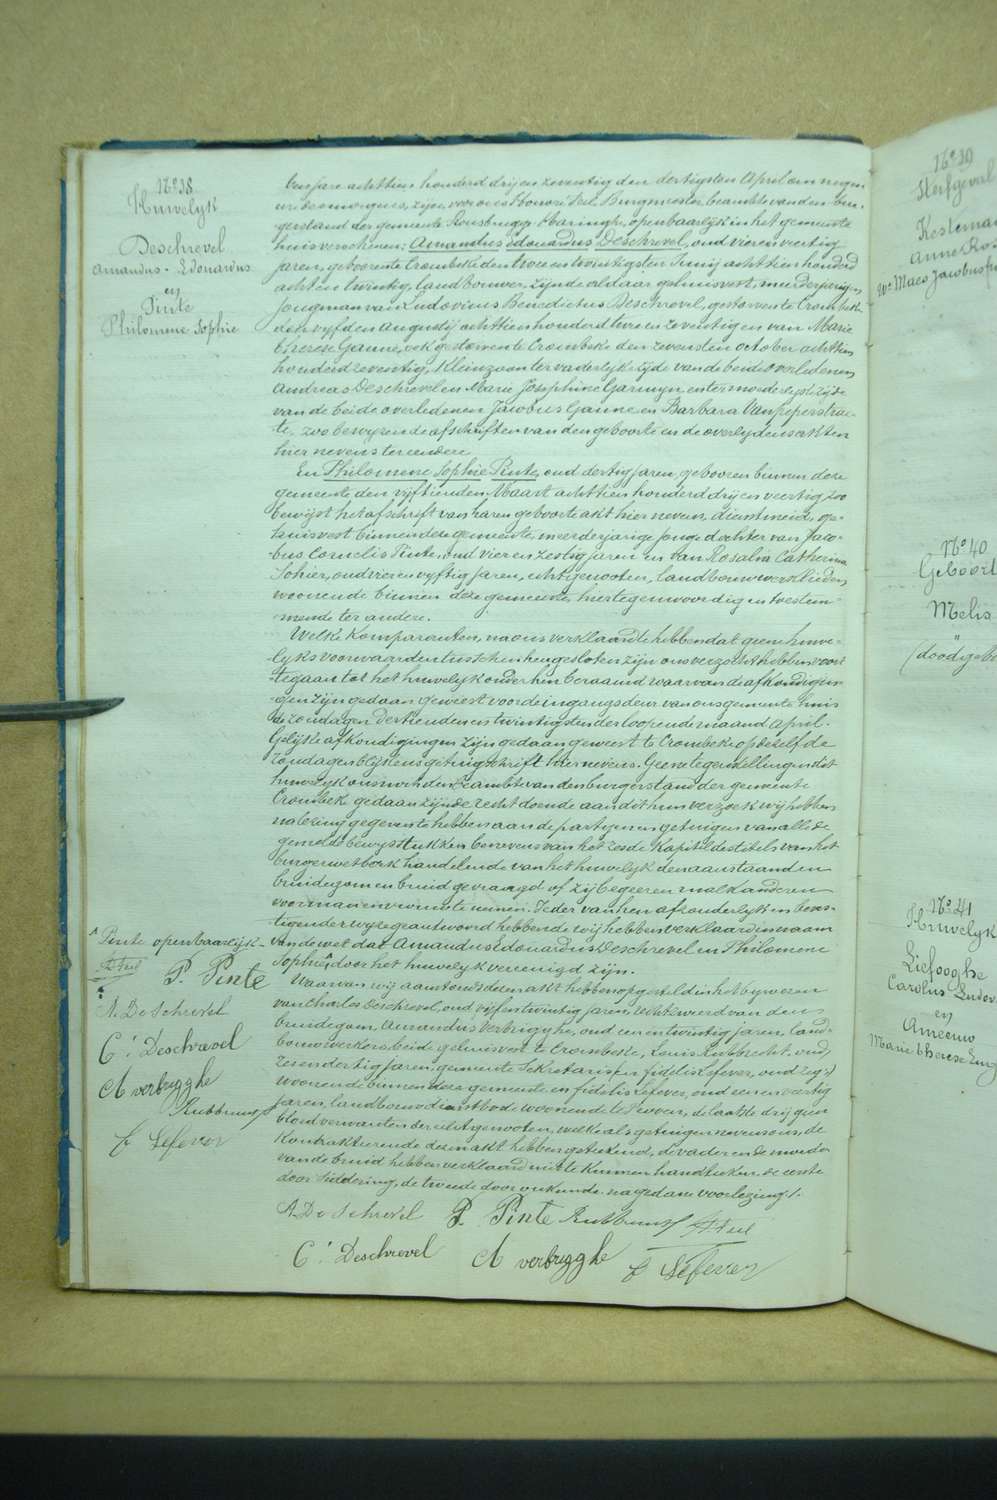 N° 38
Huwelyk
Deschrevel
Amandus-Edouardus
en
Pinte
Philomene Sophie
Ten jare achttien honderd drij en zeventig den dertigsten April om negen
ure des morgens, zijn voor ons Honoré Burgmeester beambte van den bur-
gerstand der gemeente Rousbrugge Haringhe, openbaarlyk in het gemeente
huis verschenen: Amandus Edouardus Deschrevel, oud vier en veertig
jaren, geboren te Crombeke den twee en twintigsten Junij achttien honderd
acht en twintig, landbouwer, zijnde aldaar gehuisvest, meerderjarigen
jongman van Ludovicus Benedictus Deschrevel, gestorven te Crombeke
den vyfden Augusty achttien honderd twee en zeventig en van Marie
Therese Ganne, ook gestorven te Crombeke den zevensten october achttien
honderd zeventig, kleinzoon ter vaderlyke zyde van de beide overledenen
Andreas Deschrevel en Marie Josephine Garmyn en ter moederlyke zyde
van de beide overledenen Jacobus Ganne en Barbara Vanpeperstrae-
te, zoo bewyzen de afschriften van den geboorte en de overlydens akten
hier nevens ter eendere
En Philomene Sophie Pinte, oud dertig jaren, geboren binnen deze
gemeente den vyftienden Maart achttien honderd drij en veertig, zoo
bewyst het afschrift van haren geboorte akt hier nevens, dienstmeid, ge-
huisvest binnen deze gemeente, meerderjarige jonge dochter van Jaco-
bus Cornelis Pinte, oud vier en zestig jaren en van Rosalia Catherina
Sohier, oud vier en vyftig jaren, echtgenooten, landbouwwerklieden,
woonende binnen deze gemeente, hier tegenwoordig en toestem-
mende ter andere.
Welke komparanten, na ons verklaard te hebben dat geene huwe-
lyks voorwaarden tusschen hen gesloten zijn ons verzocht hebben voort
te gaan tot het huwelyk onder hen beraamd waarvan de afkondigin-
gen zijn gedaan geweest voor de ingangsdeur van ons gemeente huis
de zondagen dertienden en twintigsten der loopende maand April.
Gelyke afkondigingen zijn gedaan geweest te Crombeke op dezelfde
zondagen blykens getuigschrift hier nevens. Geene tegenstellingen dit
huwelyk ons noch den beambte van den burgerstand der gemeente
Crombeke gedaan zijnde recht doende aan dit hun verzoek wij hebben
na lezing gegeven te hebben aan de partyen en getuigen van alle de
gemelde bewysstukken benevens van het zesde Kapittel des titels van het
burgerwetboek handelende van het huwelyk den aanstaanden
bruidegom en bruid gevraagd of zij begeeren malkanderen
voor man en vrouw te nemen. Ieder van hen afzonderlyk en beves-
tigender wyze geantwoord hebbende wij hebben verklaard in naam
van de wet dat Amandus Edouardus Deschrevel en Philomene
Sophie, door het huwelyk vereenigd zijn.
Waarvan wij aanstonds deen akt hebben opgesteld in het bywezen
van Charles Deschrevel, oud vijf en twintig jaren, vermeerd van den
bruidegom, Amandus Verbrugghe, oud een en twintig jaren, land-
bouwwerkers beide gehuisvest te Crombeke, Louis Rubbrecht, oud
zes en dertig jaren, gemeente Sekretaris en fidelis Lefever, oud
woonende binnen deze gemeente en fidelis Lefever, oud een en veertig
jaren, landbouwdienstbode woonende te de laatste drij geen
bloedverwanten der echtgenooten, welke als getuigen nevens ons, de
kontrakteerende dezen akt hebben geteekend, de vader en de moeder
van de bruid hebben verklaard niet te kunnen handteeken de eerste
door siddering, de tweede door onkunde. na gedane voorlezing /.
A. De Schrevel P. Pinte
C. Deschrevel A verbrugghe f Lefever
^ Pinte openbaarlyk
P. Pinte
A. De Schrevel
C. Deschrevel
A verbrugghe
f Lefever
N° 39
Sterfgeval
Anne
We Maes Jacobus
N° 40
Geboort
Melis
"
(doodgebo
N° 41
Huwelyk
Liefooghe
Carolus Ludov
en
Ameeuw
Marie Therese